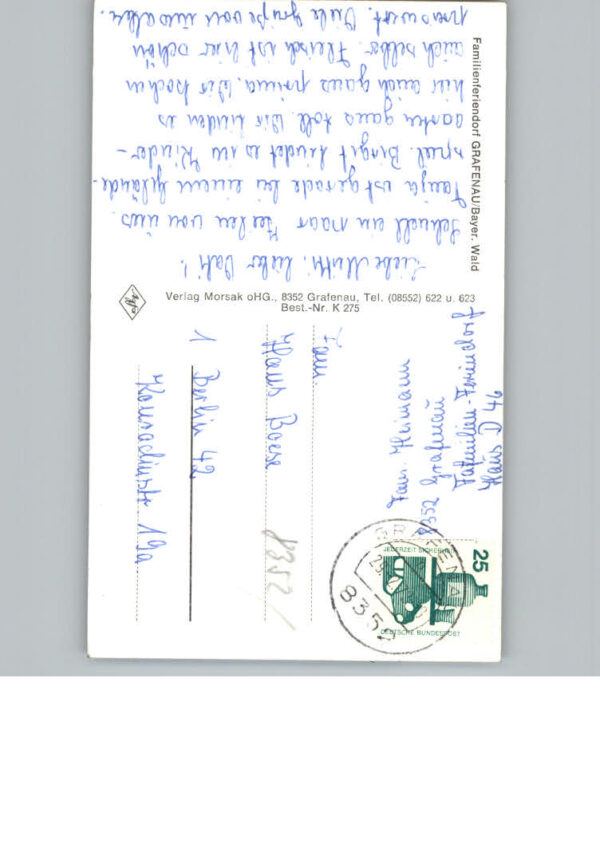 Familienferiendorf GRAFENAU/Bayer. Wald
Liebe Mutti, lieber Vati!
Schnell ein paar Zeilen von uns.
Tanja ist gerade bei einem Gelände-
spiel. Birgit findet es im Kinder-
garten ganz toll. Wir finden es
hier auch ganz prima. Wir kochen
auch selber. Fleisch ist hier schön
preiswert. Viele Grüße von uns allen.
Agfa
Verlag Morsak oHG., 8352 Grafenau, Tel. (08552) 622 u. 623
Best.-Nr. K 275
Fam. Heimann
8352 Grafenau
Familien-Feriendorf
Haus D 42
25
JEDERZEIT SICHERHEIT
DEUTSCHE BUNDESPOST
GRAFENAU
8352
Fam.
Hans Boese
8352
1 Berlin 42
Konradinstr 19a